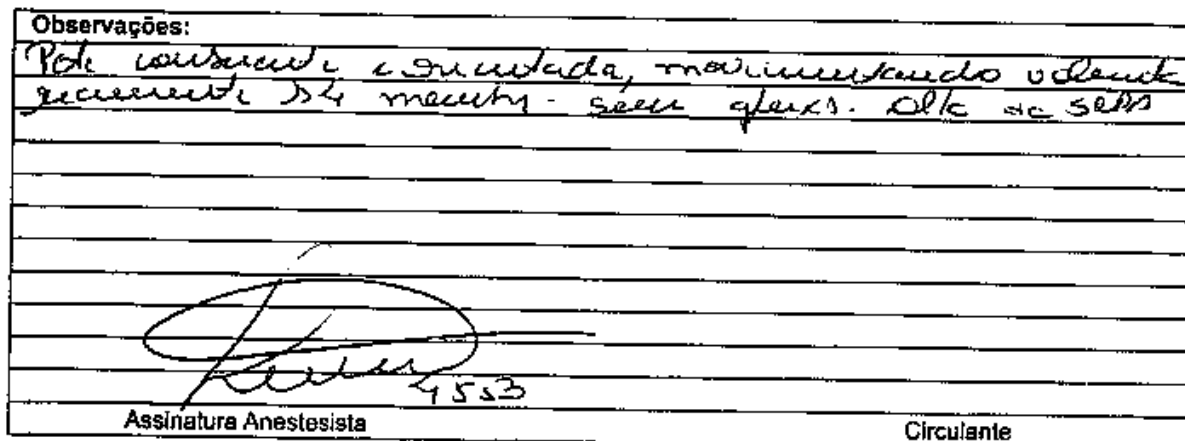 Observações:
Pcte consciente e orientada, movimentando volunta
riamente os 4 membros. sem queixas. Alta da SRPA
4553
Assinatura Anestesista
Circulante